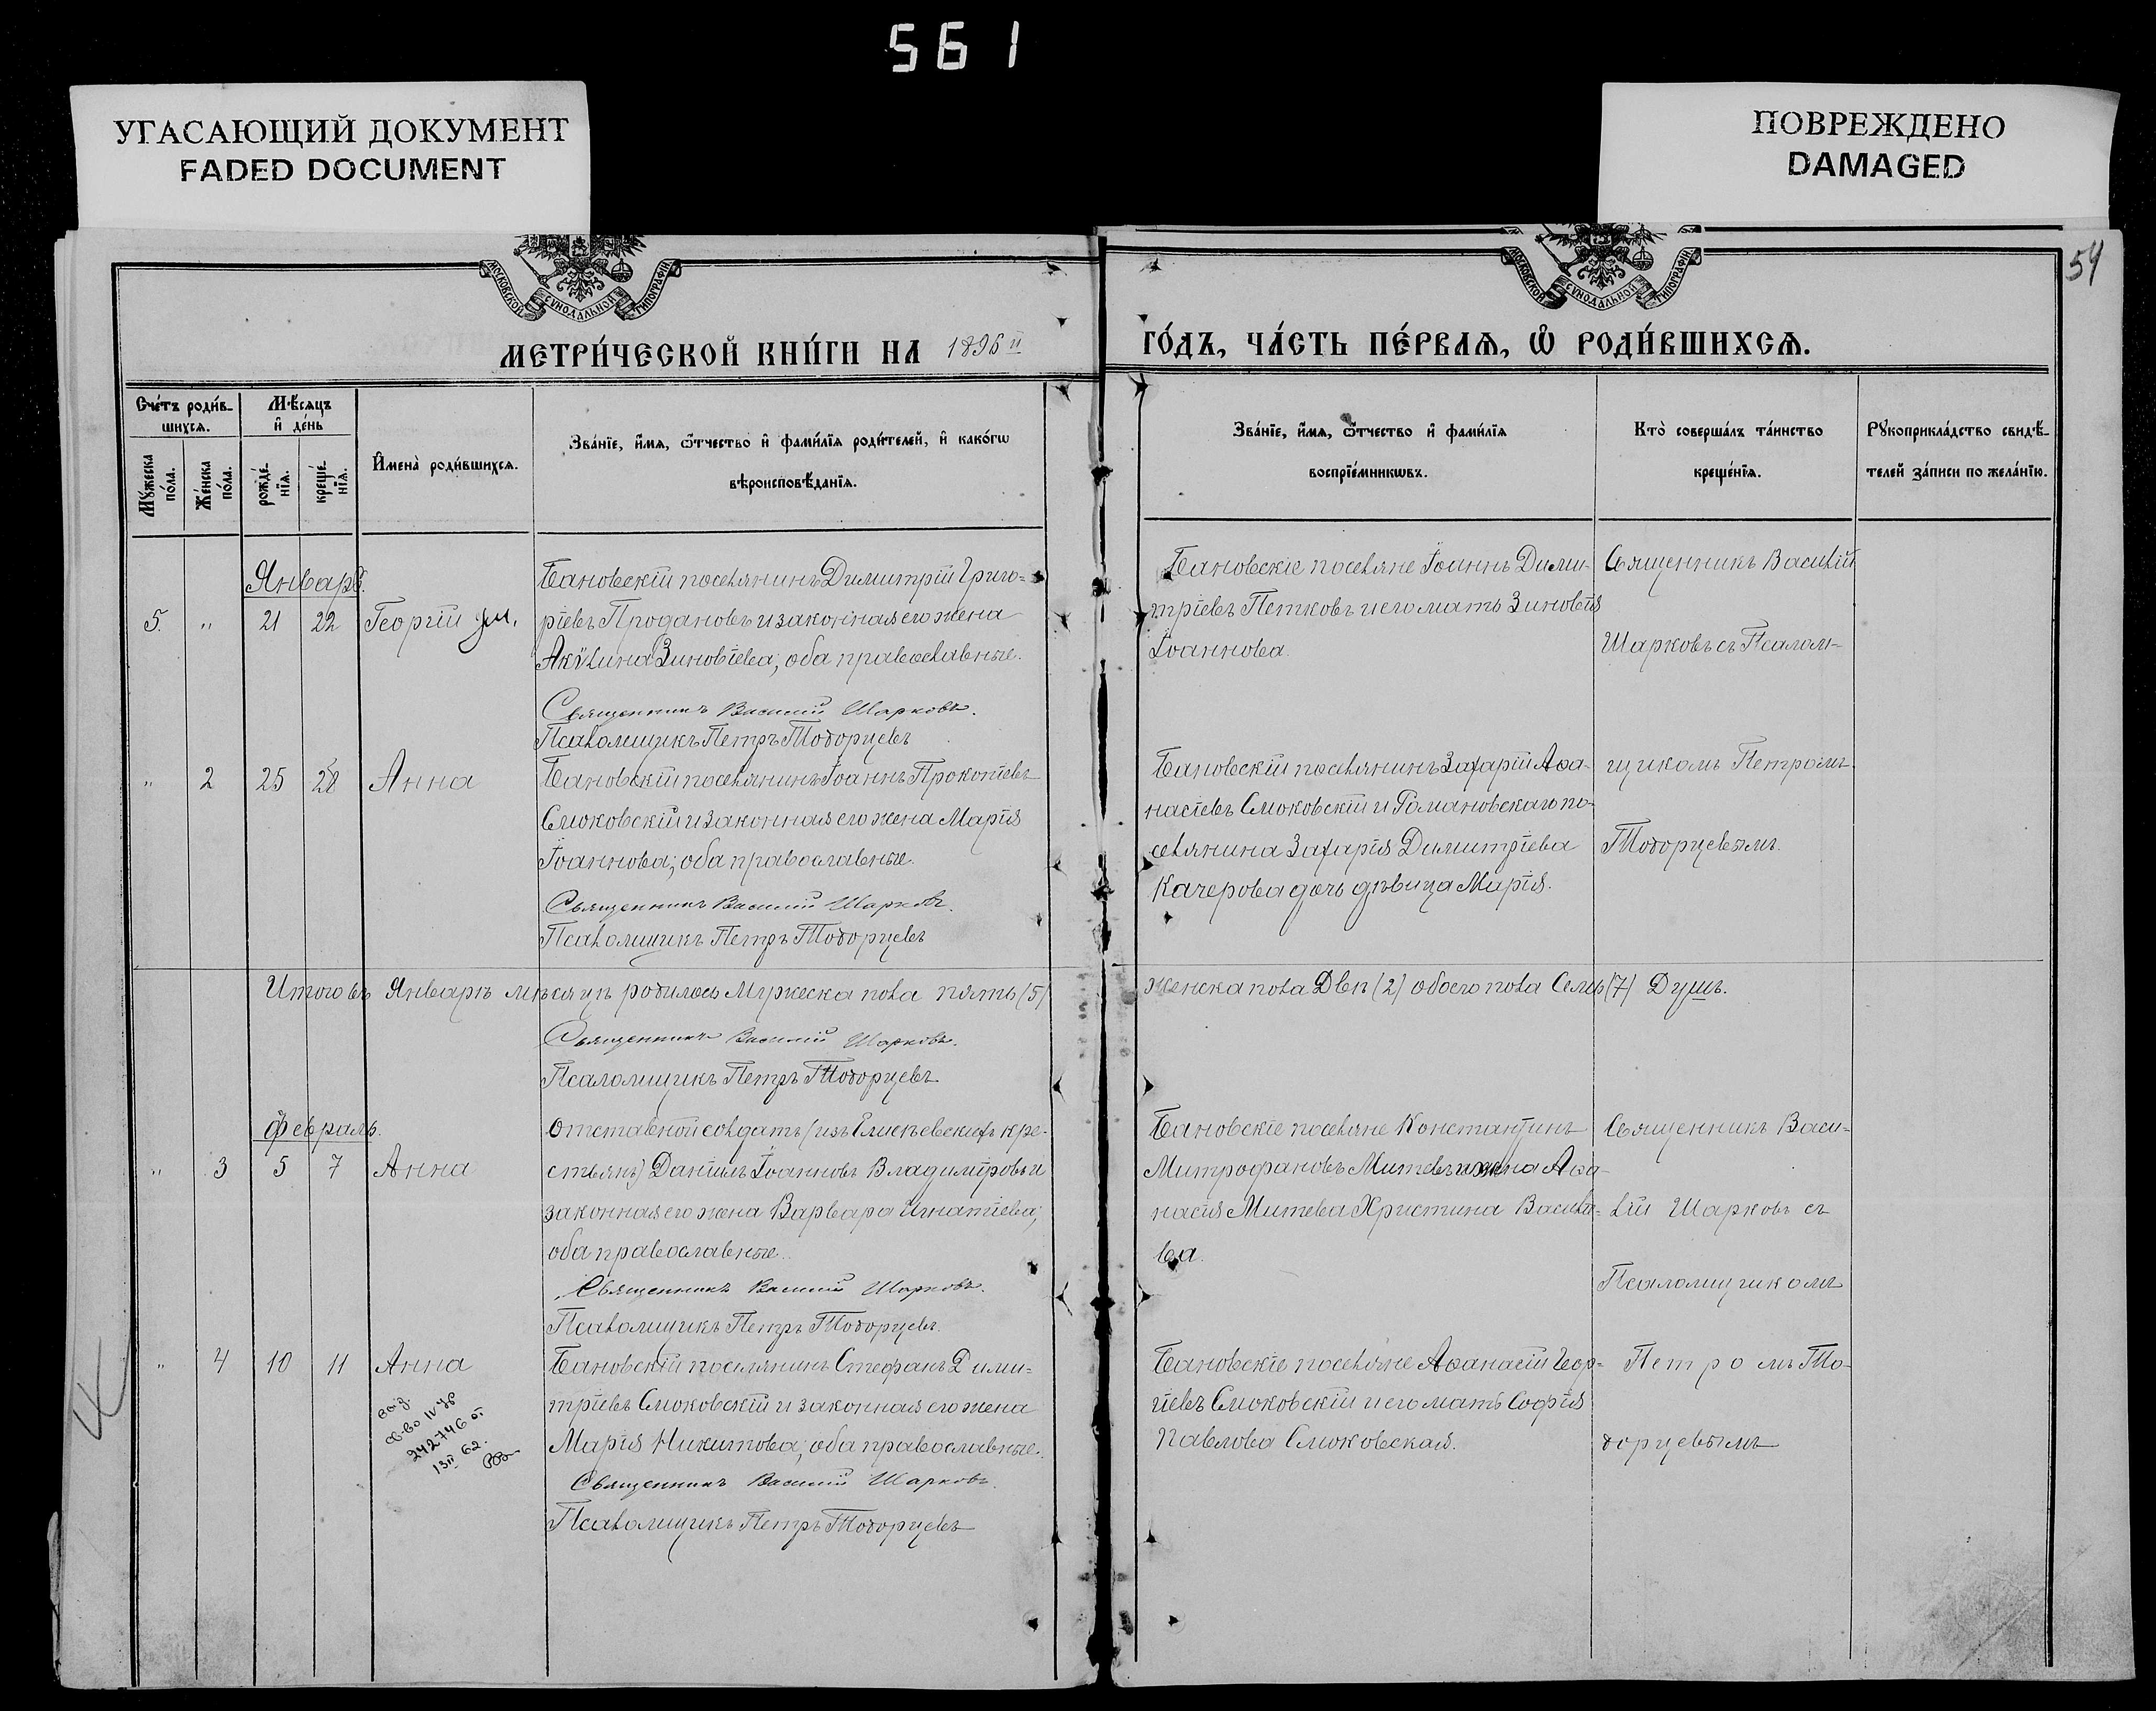 561
УГАСАЮЩИЙ ДОКУМЕНТ
FADED DOCUMENT
ПОВРЕЖДЕНО
DAMAGED
54
МОСКОВСКОЙ СУНОДАЛЬНОЙ ТИПОГРАФІИ
МОСКОВСКОЙ СУНОДАЛЬНОЙ ТИПОГРАФІИ
МЕТРИ́ЧЕСКОЙ КНИ́ГИ НА 1896й
ГО́ДЪ, ЧА́СТЬ ПЕ́РВАѦ, Ѽ РОДИ́ВШИХСѦ.
Сче́тъ роди́вшихсѧ.
Мꙋ́жеска по́ла.
Же́нска по́ла.
Мѣ́сѧцъ и҆ де́нь
рожде́нїѧ.
креще́нїѧ.
И҆мена̀ роди́вшихсѧ.
Зва́нїе, и҆́мѧ, ѻ҆́тчество и҆ фами́лїѧ роди́телей, и҆ како́гѡ
вѣроисповѣ́данїѧ.
Зва́нїе, и҆́мѧ, ѻ҆́тчество и҆ фами́лїѧ
воспрїе́мникѡвъ.
Кто̀ соверша́лъ та́инство
креще́нїѧ.
Рꙋкоприкла́дство свидѣ́-
телей за́писи по жела́нїю.
Январь.
5. " 21 22 Георгій ум.
Бановскій поселянинъ Димитрій Григо=
ріевъ Продановъ и законная его жена
Акѵлина Зиновіева; оба православные.
Священникъ Василій Шарковъ.
Псаломщикъ Петръ Тодорцевъ
Бановскіе поселяне Іоаннъ Дими-
тріевъ Петковъ и его мать Зиновія
Іоаннова.
Священникъ Василій
Шарковъ съ Псалом-
щикомъ Петромъ
Тодорцевымъ.
" 2 25 28 Анна
Бановскій поселянинъ Іоаннъ Прокопіевъ
Смоковскій и законная его жена Марія
Іоаннова; оба православные.
Священникъ Василій Шарковъ.
Псаломщикъ Петръ Тодорцевъ
Бановскій поселянинъ Захарій Аѳа-
насіевъ Смоковскій и Романовскаго по-
селянина Захарія Димитріева
Качерова дочь дѣвица Марія.
Итого въ Январѣ мѣсяцѣ родилось Мужеска пола пять (5)
женска пола Двѣ (2) обоего пола Семь (7) Душъ.
Священникъ Василій Шарковъ.
Псаломщикъ Петръ Тодорцевъ
Февраль.
" 3 5 7 Анна
Отставной солдатъ (изъ Елисѣевскихъ кре-
стьянъ) Даніилъ Іоанновъ Владиміровъ и
законная его жена Варвара Игнатіева;
оба православные.
Священникъ Василій Шарковъ.
Псаломщикъ Петръ Тодорцевъ.
Бановскіе поселяне Константинъ
Митрофановъ Митевъ и жена Аѳа-
насія Митева Христина Василі=
ева.
Священникъ Васи=
лій Шарковъ съ
Псаломщикомъ
Петромъ То-
дорцевымъ
" 4 10 11 Анна
242746 от
13 II 62.
Бановскій поселянинъ Стефанъ Дими=
тріевъ Смоковскій и законная его жена
Марія Никитова; оба православные.
Священникъ Василій Шарковъ.
Псаломщикъ Петръ Тодорцевъ
Бановскіе поселяне Аѳанасій Геор=
гіевъ Смоковскій и его мать Софія
Павлова Смоковская.